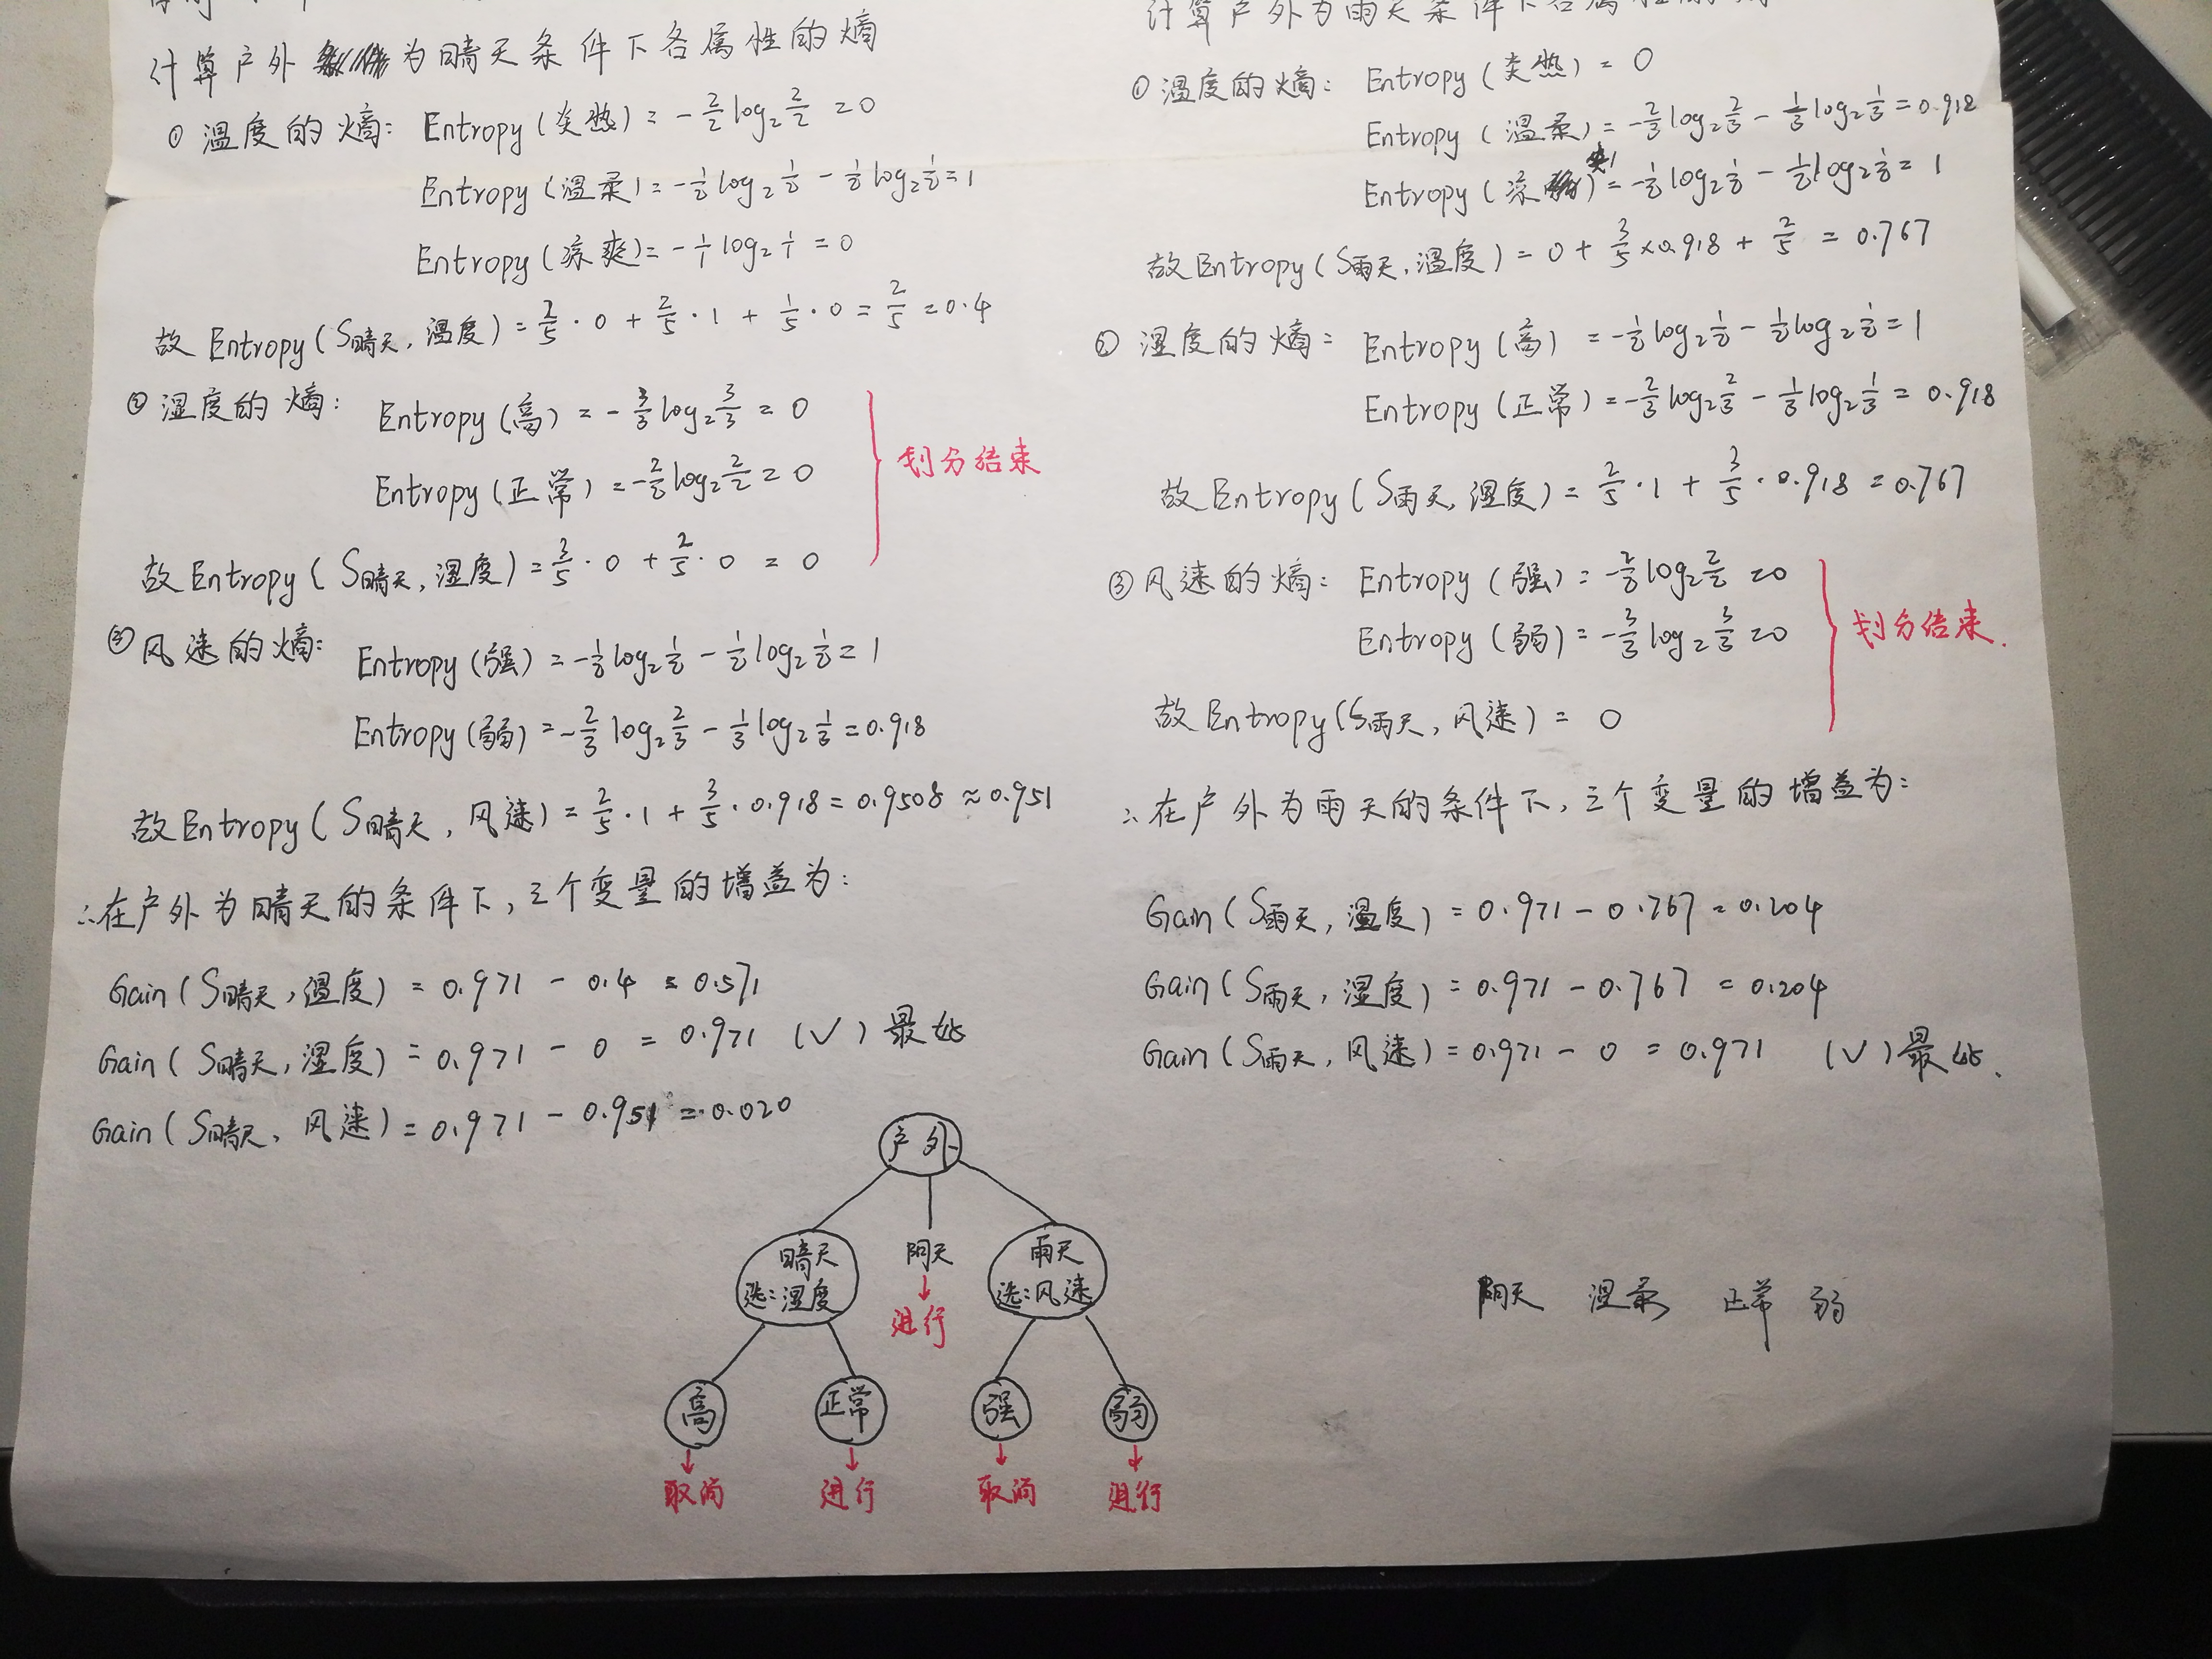 计算户外为晴天条件下各属性的熵
① 温度的熵: Entropy(炎热) = -2/2 log₂ 2/2 = 0
Entropy(温柔) = -1/2 log₂ 1/2 - 1/2 log₂ 1/2 = 1
Entropy(凉爽) = -1/1 log₂ 1/1 = 0
故 Entropy(S晴天, 温度) = 2/5 · 0 + 2/5 · 1 + 1/5 · 0 = 2/5 = 0.4
② 湿度的熵: Entropy(高) = -3/3 log₂ 3/3 = 0
Entropy(正常) = -2/2 log₂ 2/2 = 0
划分结束
故 Entropy(S晴天, 湿度) = 3/5 · 0 + 2/5 · 0 = 0
③ 风速的熵: Entropy(强) = -1/2 log₂ 1/2 - 1/2 log₂ 1/2 = 1
Entropy(弱) = -2/3 log₂ 2/3 - 1/3 log₂ 1/3 = 0.918
故 Entropy(S晴天, 风速) = 2/5 · 1 + 3/5 · 0.918 = 0.9508 ≈ 0.951
∴在户外为晴天的条件下, 三个变量的增益为:
Gain(S晴天, 温度) = 0.971 - 0.4 = 0.571
Gain(S晴天, 湿度) = 0.971 - 0 = 0.971 (√) 最优
Gain(S晴天, 风速) = 0.971 - 0.951 = 0.020
计算户外为雨天条件下各属性的熵
① 温度的熵: Entropy(炎热) = 0
Entropy(温柔) = -2/3 log₂ 2/3 - 1/3 log₂ 1/3 = 0.918
Entropy(凉爽) = -1/2 log₂ 1/2 - 1/2 log₂ 1/2 = 1
故 Entropy(S雨天, 温度) = 0 + 3/5 × 0.918 + 2/5 = 0.767
② 湿度的熵: Entropy(高) = -1/2 log₂ 1/2 - 1/2 log₂ 1/2 = 1
Entropy(正常) = -2/3 log₂ 2/3 - 1/3 log₂ 1/3 = 0.918
故 Entropy(S雨天, 湿度) = 2/5 · 1 + 3/5 · 0.918 = 0.767
③ 风速的熵: Entropy(强) = -2/2 log₂ 2/2 = 0
Entropy(弱) = -3/3 log₂ 3/3 = 0
划分结束.
故 Entropy(S雨天, 风速) = 0
∴在户外为雨天的条件下, 三个变量的增益为:
Gain(S雨天, 温度) = 0.971 - 0.767 = 0.204
Gain(S雨天, 湿度) = 0.971 - 0.767 = 0.204
Gain(S雨天, 风速) = 0.971 - 0 = 0.971 (√) 最优.
户外
晴天 阴天 雨天
选:湿度 进行 选:风速
高 正常 强 弱
取消 进行 取消 进行
阴天 温柔 正常 弱